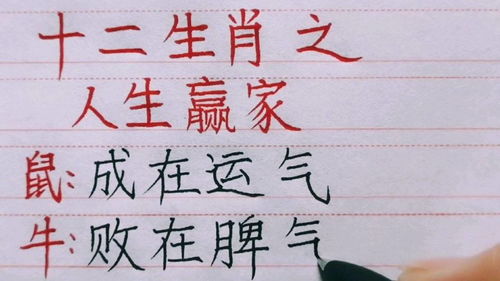 十二生肖之
人生赢家
鼠:成在运气
牛:败在脾气